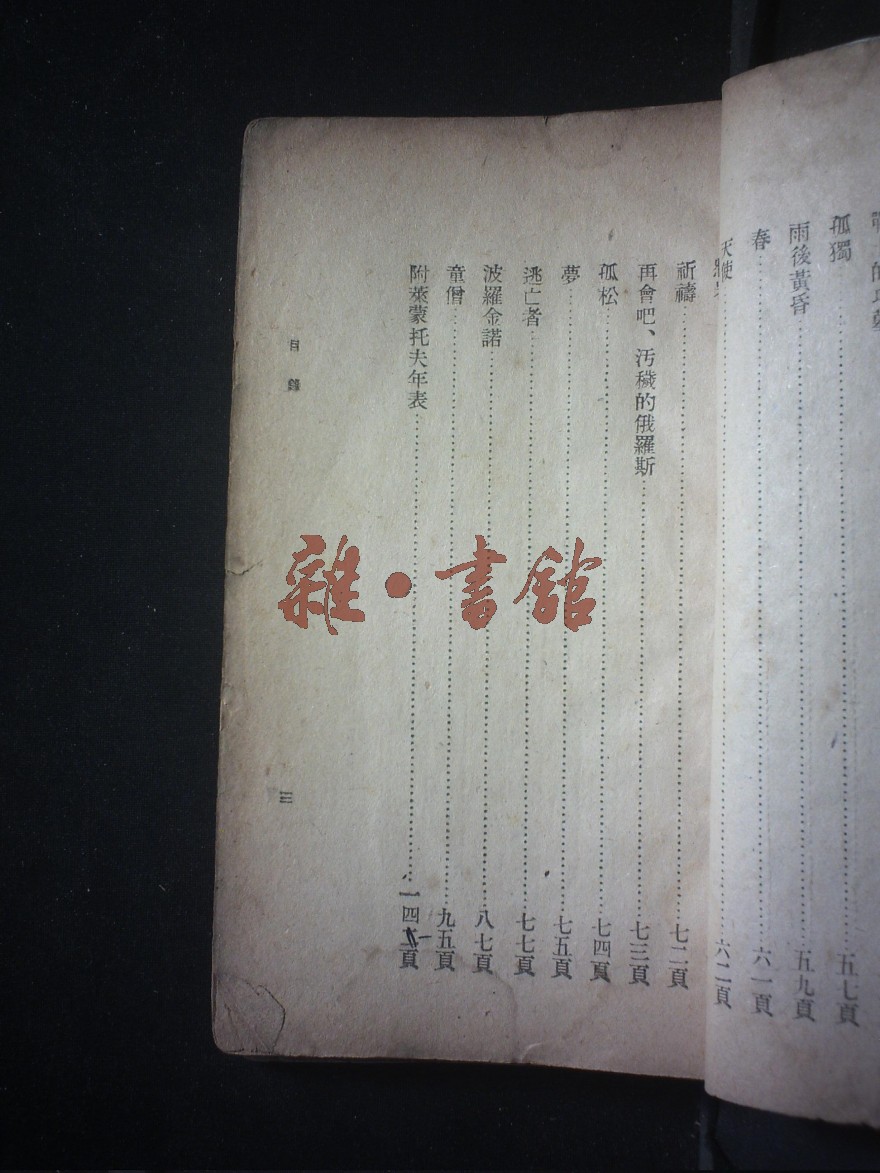 孤獨……五七頁
雨後黃昏……五九頁
春……六一頁
天使……六二頁
祈禱……七二頁
再會吧、汚穢的俄羅斯……七三頁
孤松……七四頁
夢……七五頁
逃亡者……七七頁
波羅金諾……八七頁
童僧……九五頁
附萊蒙托夫年表……一四頁
目錄
三
雜·書館